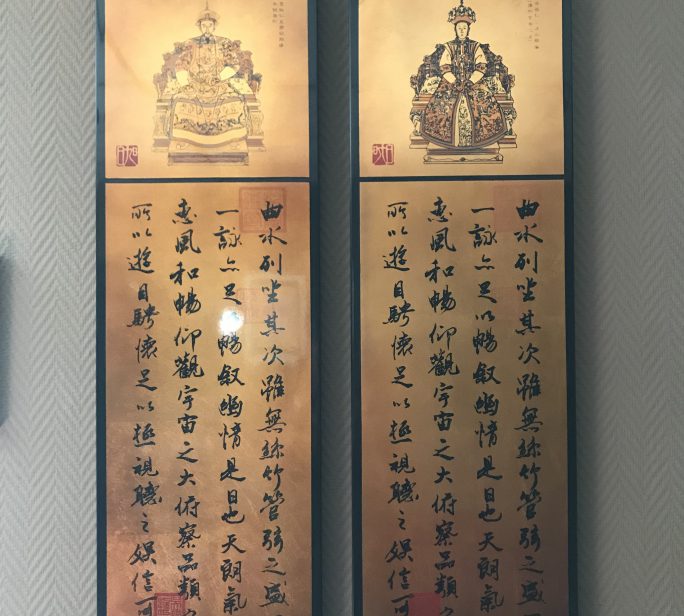 曲水列坐其次雖無絲竹管弦之盛
一詠亦足以暢敘幽情是日也天朗氣
惠風和暢仰觀宇宙之大俯察品類
所以遊目騁懷足以極視聽之娛信可
曲水列坐其次雖無絲竹管弦之盛
一詠亦足以暢敘幽情是日也天朗氣
惠風和暢仰觀宇宙之大俯察品類
所以遊目騁懷足以極視聽之娛信可